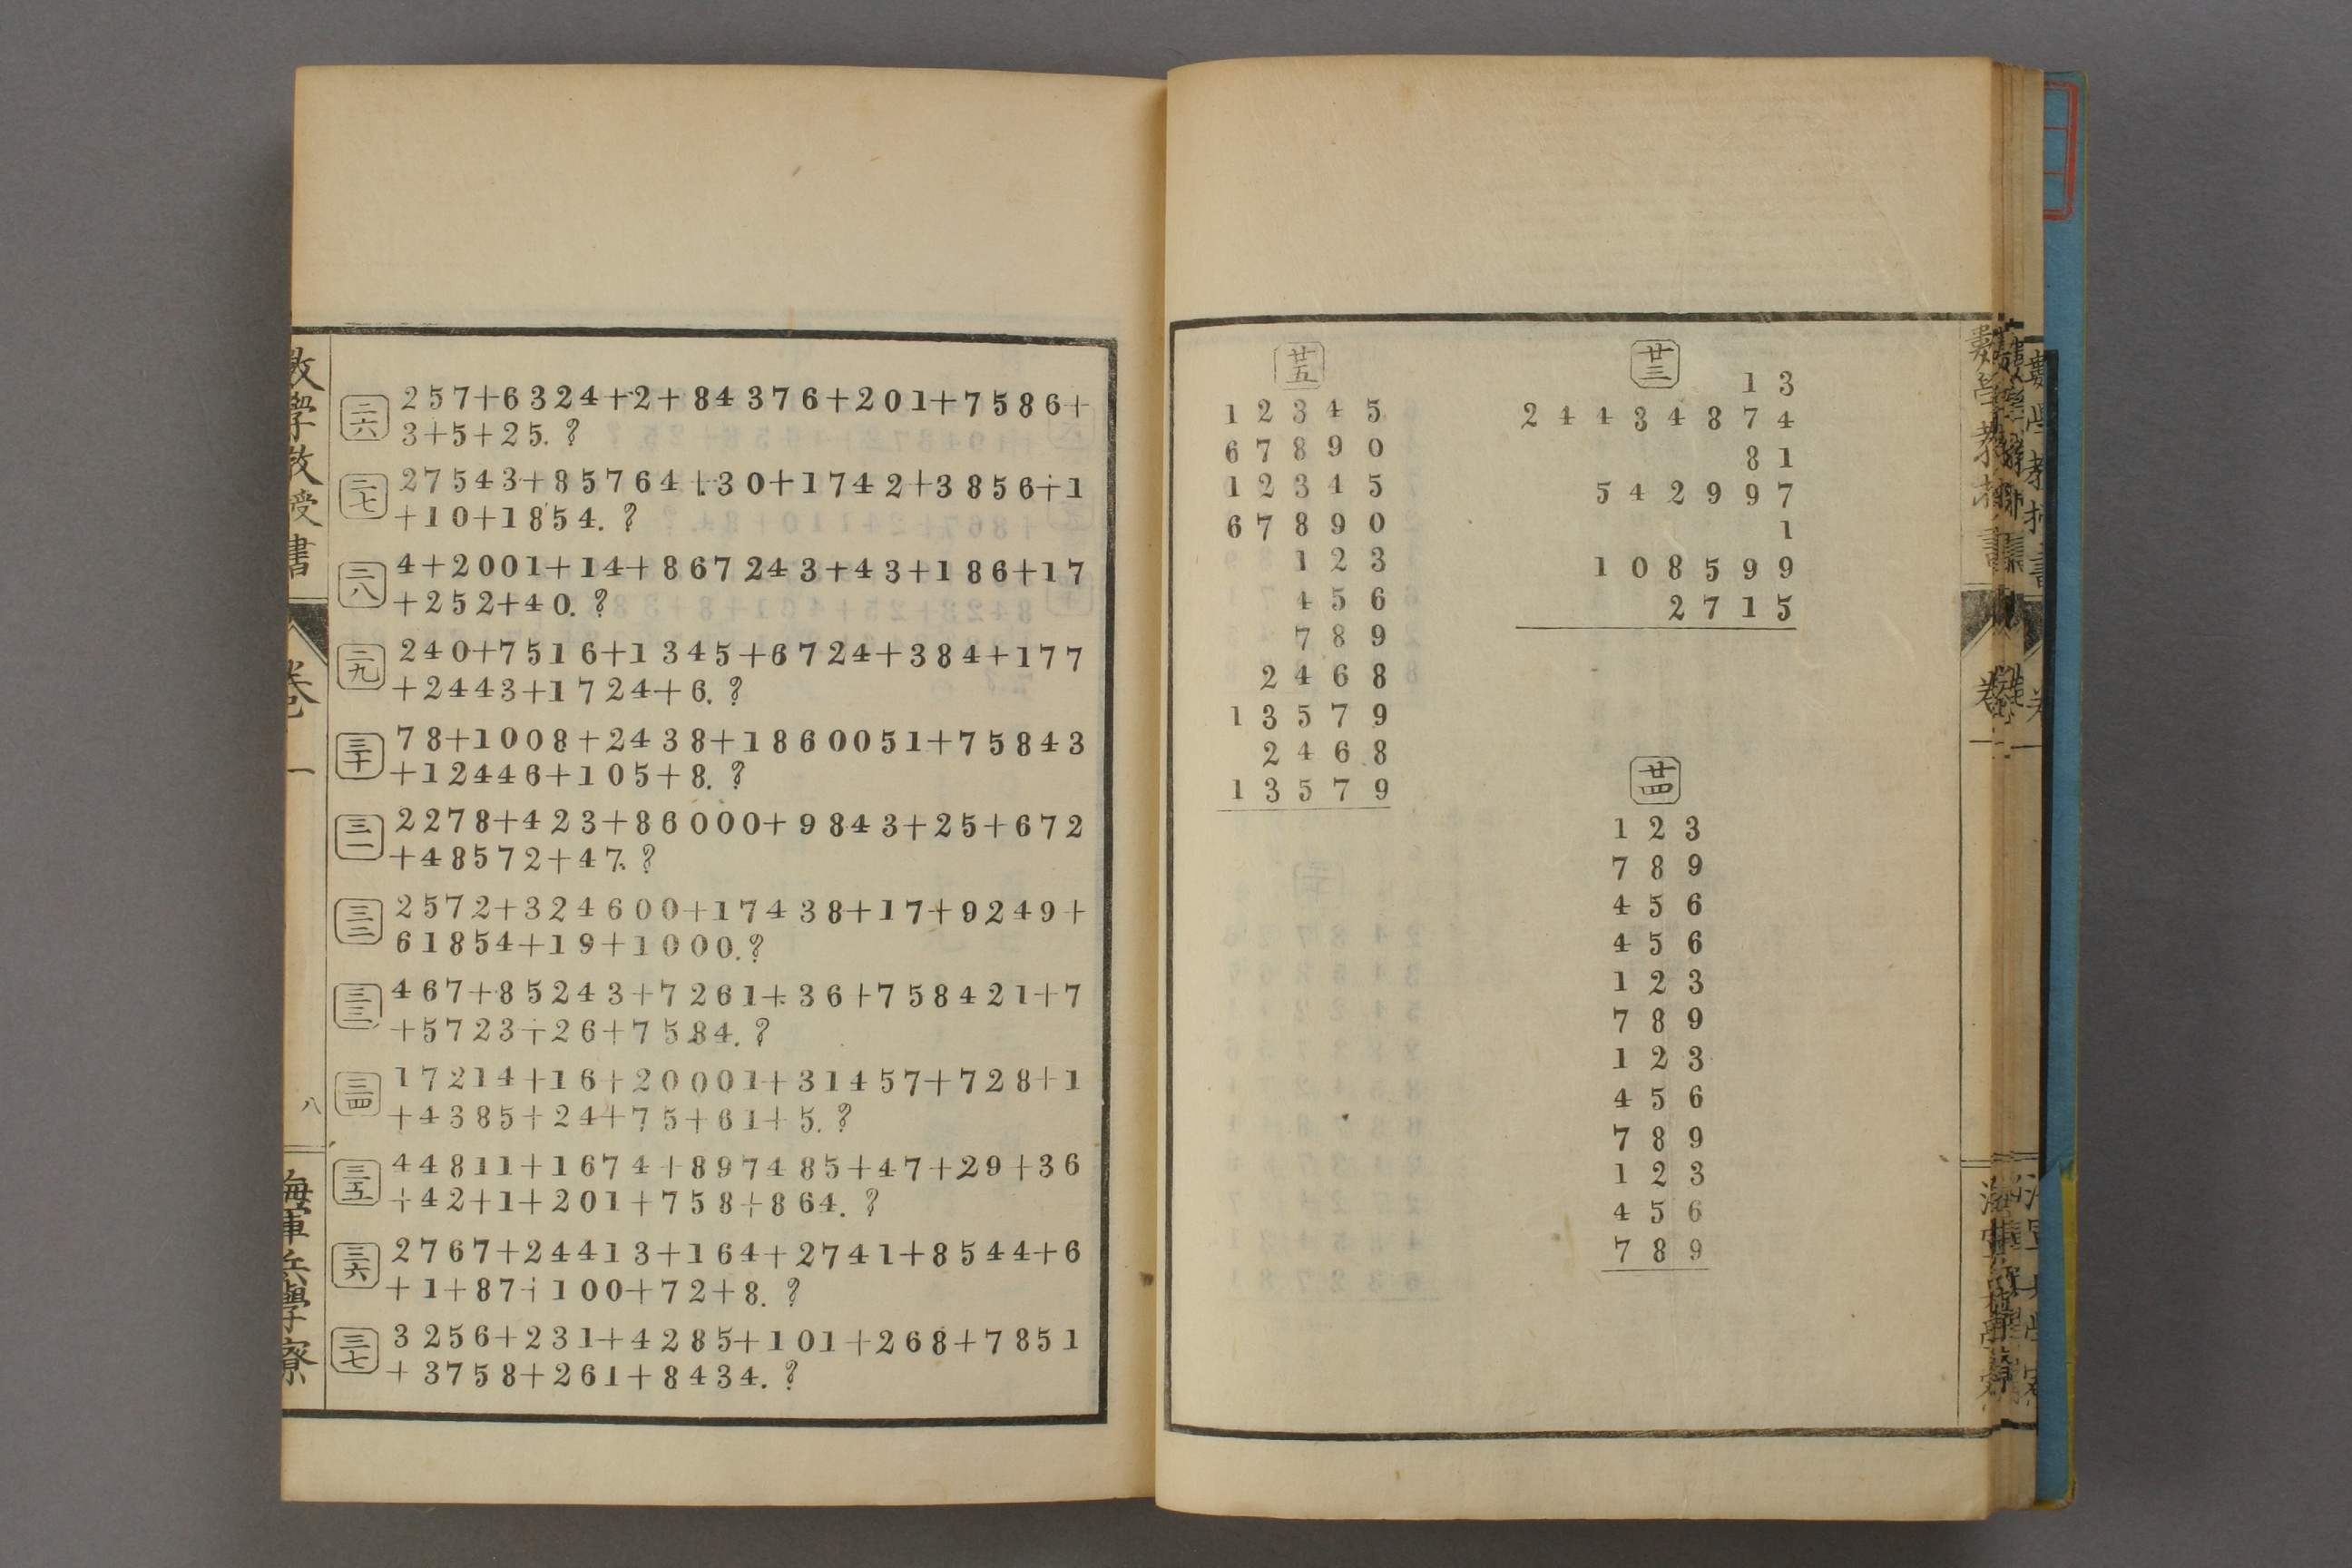 廿三
13
24434874
81
542997
1
108599
2715
廿四
123
789
456
456
123
789
123
456
789
123
456
789
廿五
12345
67890
12345
67890
123
456
789
2468
13579
2468
13579
二六 257+6324+2+84376+201+7586+
3+5+25.?
二七 27543+85764+30+1742+3856+1
+10+1854.?
二八 4+2001+14+867243+43+186+17
+252+40.?
二九 240+7516+1345+6724+384+177
+2443+1724+6.?
三十 78+1008+2438+1860051+75843
+12446+105+8.?
三一 2278+423+86000+9843+25+672
+48572+47.?
三二 2572+324600+17438+17+9249+
61854+19+1000.?
三三 467+85243+7261+36+758421+7
+5723+26+7584.?
三四 17214+16+20001+31457+728+1
+4385+24+75+61+5.?
三五 44811+1674+897485+47+29+36
+42+1+201+758+864.?
三六 2767+24413+164+2741+8544+6
+1+87+100+72+8.?
三七 3256+231+4285+101+268+7851
+3758+261+8434.?
數學教授書
卷一
八
海軍兵學寮